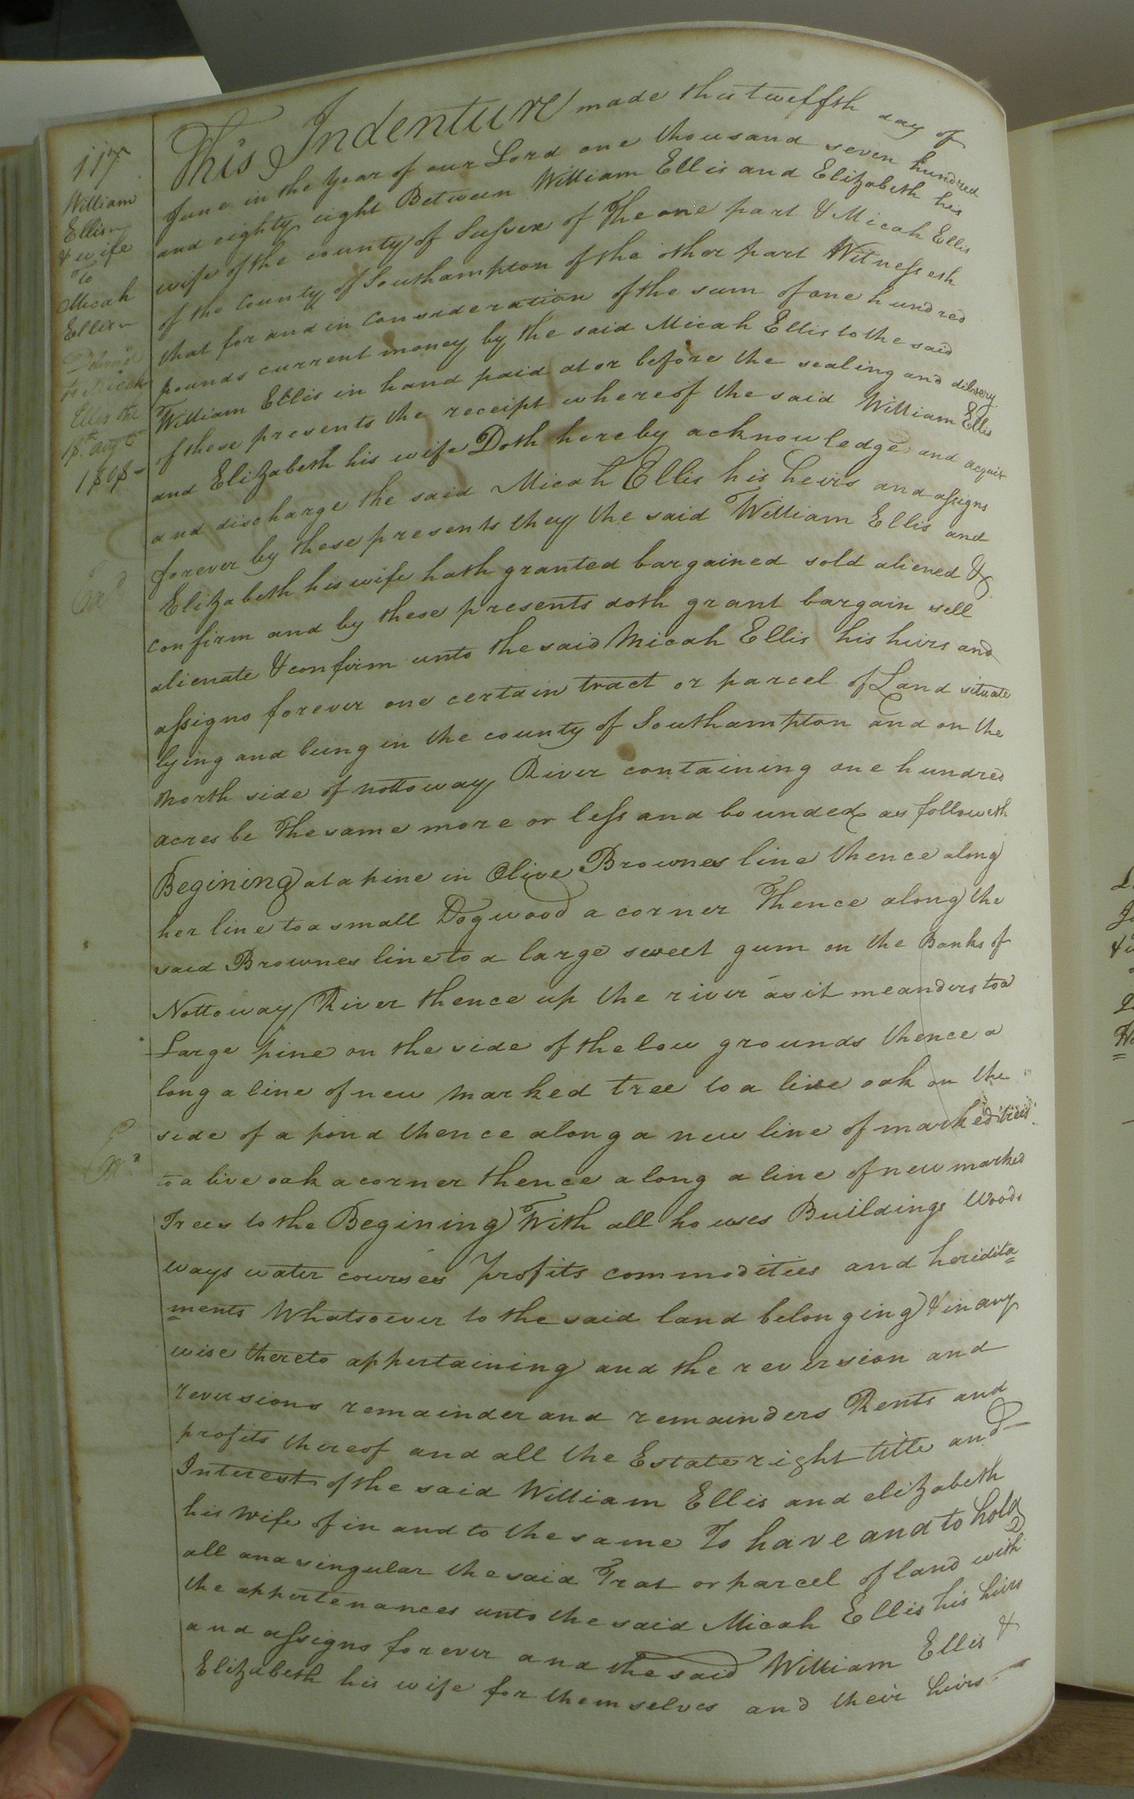 117
William
Ellis
& wife
to
Micah
Ellis
Deliver'd
to Micah
Ellis the
18th. augt
1808
Exd
This Indenture made this twelfth day of
June in the Year of our Lord one thousand seven hundred
and eighty eight Between William Ellis and Elizabeth his
wife of the county of Sussex of The one part & Micah Ellis
of the County of Southampton of the other part Witnesseth
that for and in consideration of the sum of one hundred
pounds current money by the said Micah Ellis to the said
William Ellis in hand paid at or before the sealing and delivery
of these presents the receipt whereof the said William Ellis
and Elizabeth his wife Doth hereby acknowledge and acquit
and discharge the said Micah Ellis his heirs and assigns
forever by these presents they the said William Ellis and
Elizabeth his wife hath granted bargained sold aliened &
confirm and by these presents doth grant bargain sell
alienate & confirm unto the said Micah Ellis his heirs and
assigns forever one certain tract or parcel of Land situate
lying and being in the county of Southampton and on the
north side of nottoway River containing one hundred
acres be The same more or less and bounded as followeth
Begining at a pine in Olive Brownes line thence along
her line to a small Dogwood a corner Thence along the
said Brownes line to a large sweet gum on the Banks of
Nottoway River thence up the river as it meanders to a
Large pine on the side of the low grounds thence a
long a line of new marked tree to a live oak on the
side of a pond thence along a new line of marked trees
to a live oak a corner thence along a line of new marked
Trees to the Begining With all houses Buildings Woods
ways water courses profits commodities and heridita=
=ments Whatsoever to the said land belonging & in any
wise thereto appertaining and the reversion and
reversions remainder and remainders Rents and
profits thereof and all the Estate right title and
Interest of the said William Ellis and elizabeth
his wife of in and to the same To have and to hold
all and singular the said Trat or parcel of land with
the appertenances unto the said Micah Ellis his heirs
and assigns forever and the said William Ellis &
Elizabeth his wife for themselves and their heirs